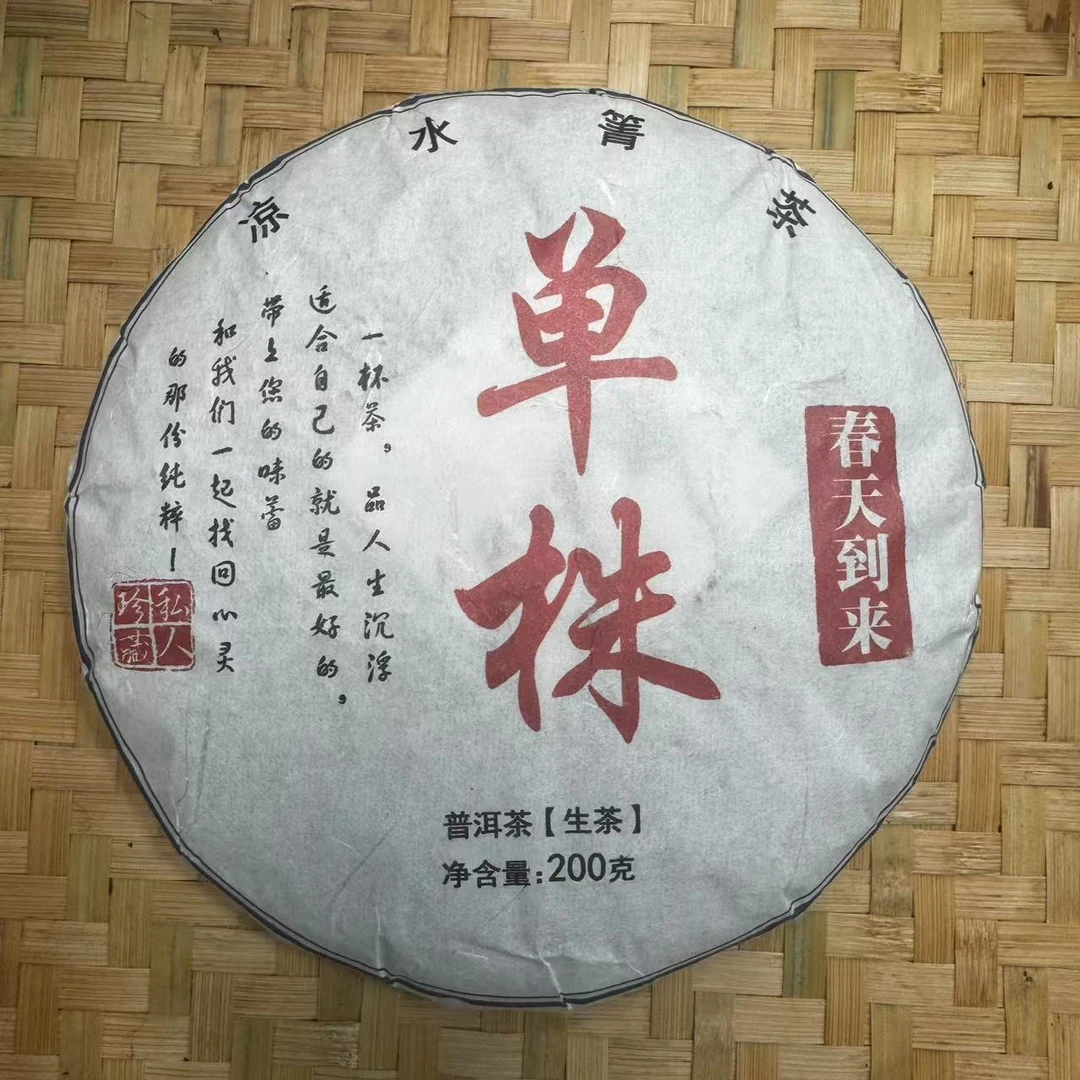 凉水箐茶
单株
春天到来
一杯茶，品人生沉浮
适合自己的就是最好的，
带上您的味蕾
和我们一起找回心灵
的那份纯粹！
私人
珍藏
普洱茶【生茶】
净含量:200克